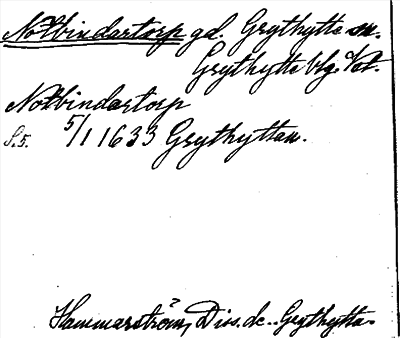 Notbindartorp gd. Grythytte sn.
Grythytte blg. Vst.
Notbindartorp
S. 5. 5/1 1633 Grythyttan.
Hammarström, Diss. de.. Grythytta.